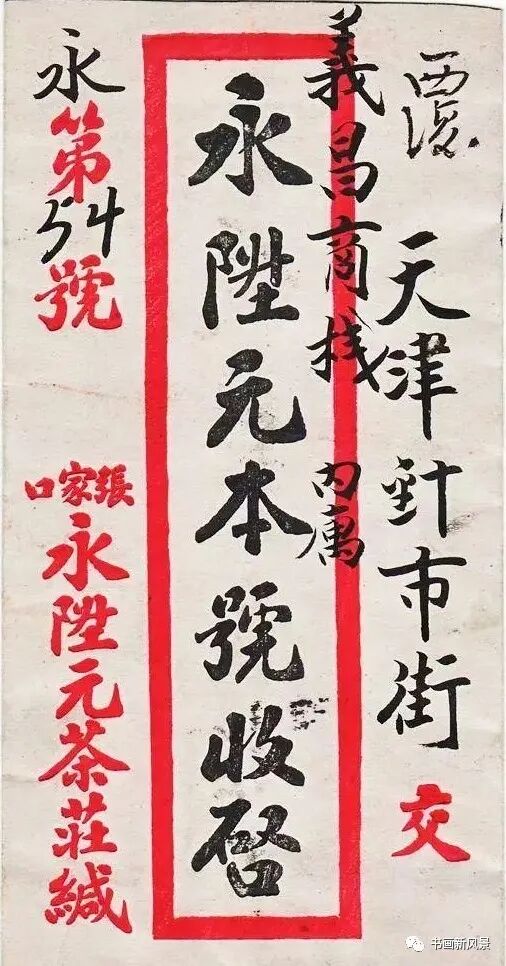 天津針市街 交
義昌商棧 內寓
永陞元本號收啓
永第54號
張家口
永陞元茶莊緘
书画新风景